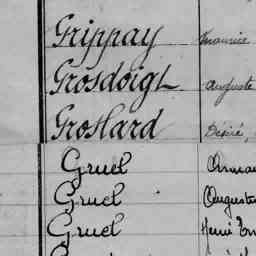 Grippay Maurice
Grosdoigt Auguste
Groslard Désiré,
Gruel Arma
Gruel Auguste
Gruel Henri